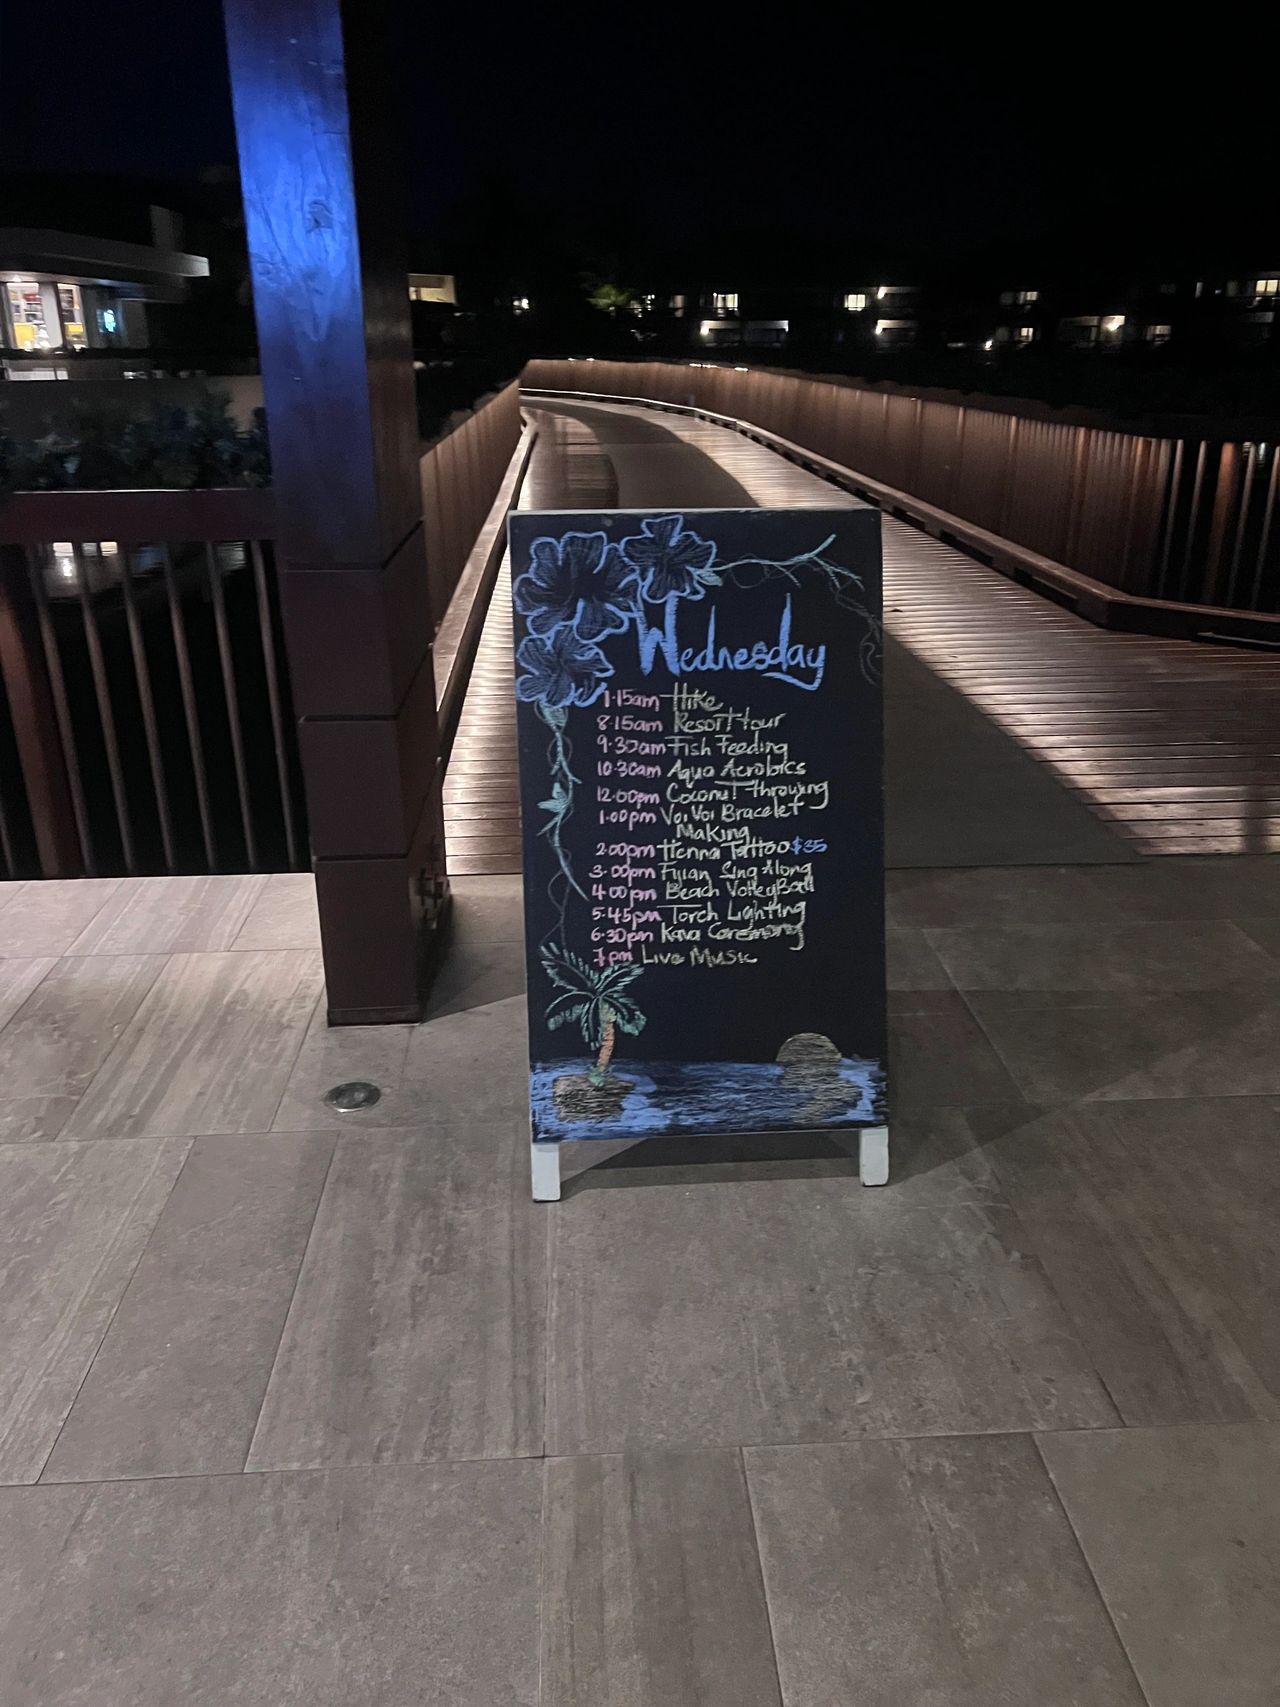 Wednesday
7.15am Hike
8.15am Resort tour
9.30am Fish Feeding
10.30am Aqua Aerobics
12.00pm Coconut throwing
1.00pm Voi Voi Bracelet
Making
2.00pm Henna Tattoo $35
3.00pm Fijian Sing Along
4.00pm Beach VolleyBall
5.45pm Torch Lighting
6.30pm Kava Ceremony
7pm Live Music